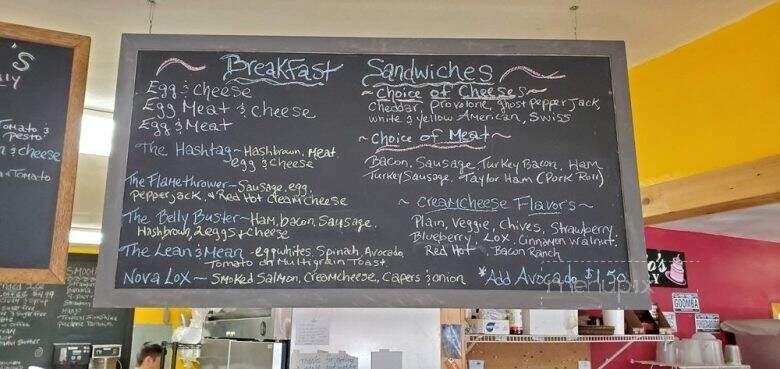 Breakfast Sandwiches
Egg & cheese
Egg Meat & cheese
Egg & Meat
The Hashtag ~ Hashbrown, Meat
egg & cheese
The Flamethrower ~ Sausage, egg,
pepper jack, & Red Hot creamcheese
The Belly Buster ~ Ham, bacon, Sausage,
Hashbrown, 2 eggs & cheese
The Lean & Mean - egg whites, Spinach, Avocado
Tomato on Multigrain Toast
Nova Lox ~ Smoked Salmon, Creamcheese, Capers & onion
~ Choice of Cheeses ~
Cheddar, Provolone, ghost Pepper Jack,
white & yellow American, Swiss
~ Choice of Meat ~
Bacon, Sausage, Turkey Bacon, Ham
Turkey Sausage, Taylor Ham (Pork Roll)
~ Creamcheese Flavors ~
Plain, Veggie, Chives, Strawberry
Blueberry, Lox, Cinnamon walnut,
Red Hot, Bacon Ranch
*Add Avocado $1.50
menupix
'S
Tomato &
Pesto
& cheese
& Tomato
Smoothi
GOOMBA